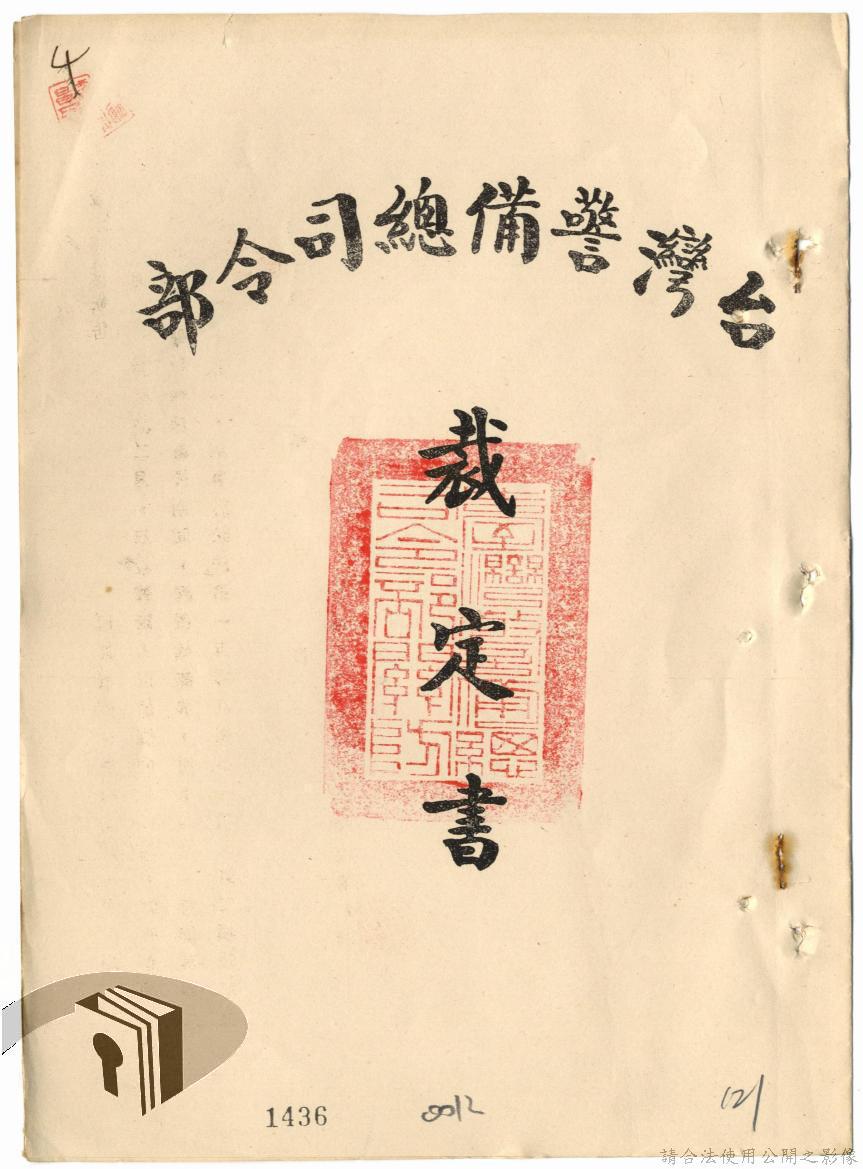 台灣警備總司令部
裁定書
1436
0012
121
請合法使用公開之影像